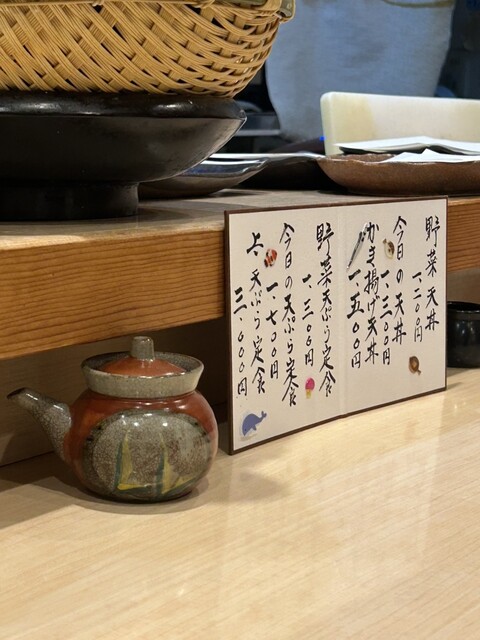 野菜天丼
一、一二〇〇円
今日の天丼
一、三〇〇円
かき揚げ天丼
一、五〇〇円
野菜天ぷら定食
一、三〇〇円
今日の天ぷら定食
一、七〇〇円
上、天ぷら定食
三、〇〇〇円